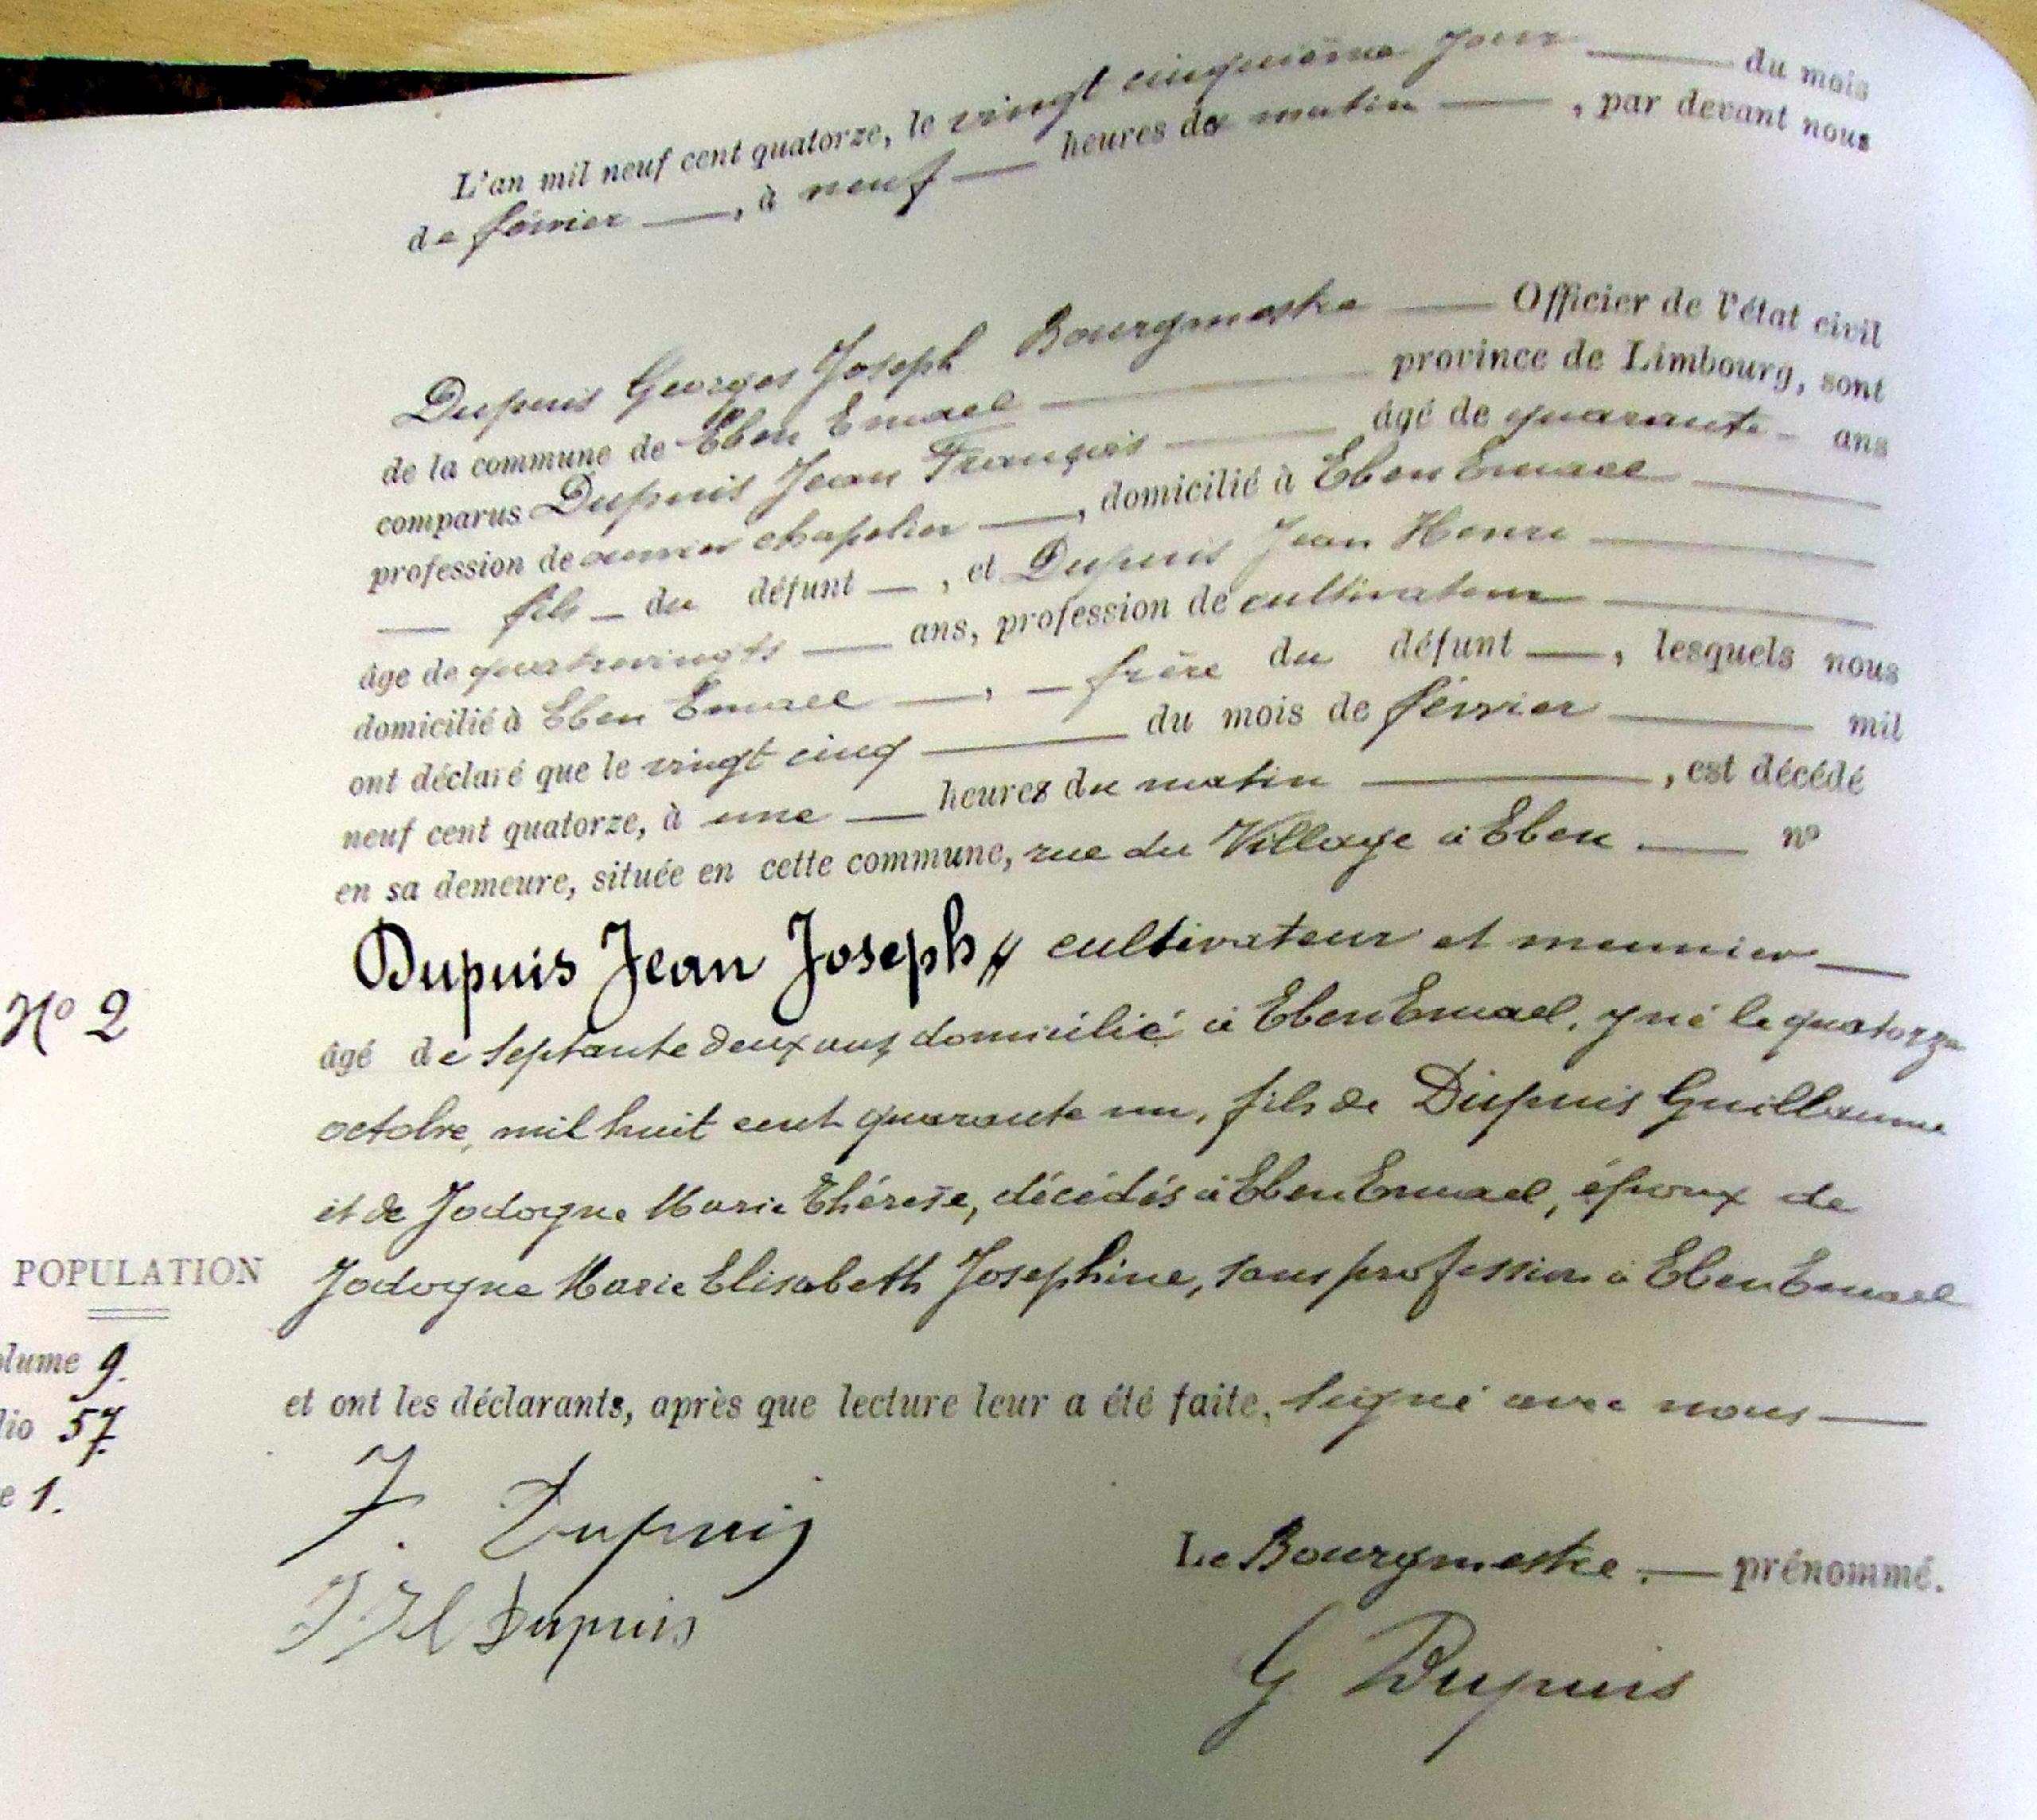 L'an mil neuf cent quatorze, le vingt cinquième jour du mois
de février, à neuf heures du matin, par devant nous
Dupuis Georges Joseph Bourgmestre Officier de l'état civil
de la commune de Eben Emael province de Limbourg, sont
comparus Dupuis Jean François âgé de quarante ans
profession de ouvrier chapelier, domicilié à Eben Emael
fils du défunt, et Dupuis Jean Henri
âge de quatrevingts ans, profession de cultivateur
domicilié à Eben Emael, frère du défunt, lesquels nous
ont déclaré que le vingt cinq du mois de février mil
neuf cent quatorze, à une heures du matin, est décédé
en sa demeure, située en cette commune, rue du Village à Eben nº
Dupuis Jean Joseph, cultivateur et meunier
Nº 2
âgé de septante deux ans, domicilié à Eben Emael, y né le quatorze
octobre, mil huit cent quarante un, fils de Dupuis Guillaume
et de Jodogne Marie Thérèse, décédés à Eben Emael, époux de
POPULATION
Jodogne Marie Elisabeth Josephine, sans profession à Eben Emael
olume 9.
et ont les déclarants, après que lecture leur a été faite, signé avec nous
lio 57
e 1.
J. Dupuis
Le Bourgmestre. prénommé.
J H Dupuis
G Dupuis